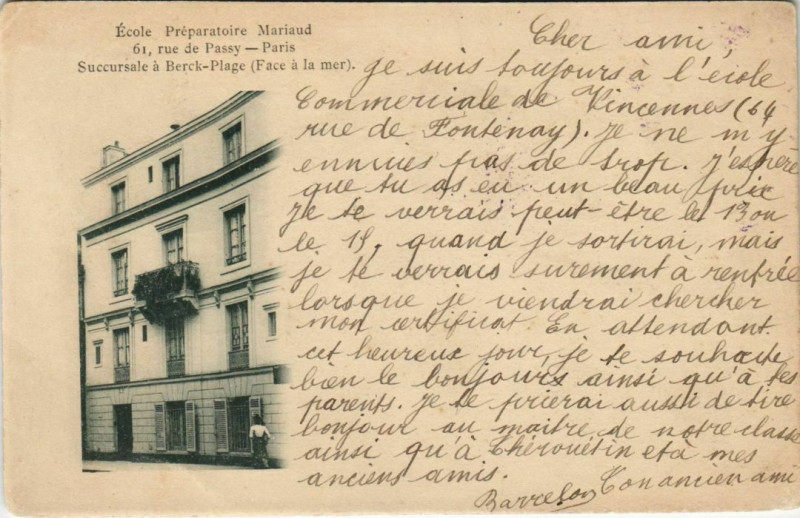 École Préparatoire Mariaud
61, rue de Passy — Paris
Succursale à Berck-Plage (Face à la mer).
Cher ami,
je suis toujours à l'école
Commerciale de Vincennes (64
rue de Fontenay). Je ne m'y
ennuies pas de trop. J'espère
que tu as eu un beau prix
Je te verrais peut-être le 13 ou
le 15, quand je sortirai, mais
je te verrais surement à rentrée
lorsque je viendrai chercher
mon certificat. En attendant
cet heureux jour, je te souhaite
bien le bonjours ainsi qu'à tes
parents. Je te prierai aussi de dire
bonjour au maitre de notre classe
ainsi qu'à Thérouétin et à mes
anciens amis.
Ton ancien ami